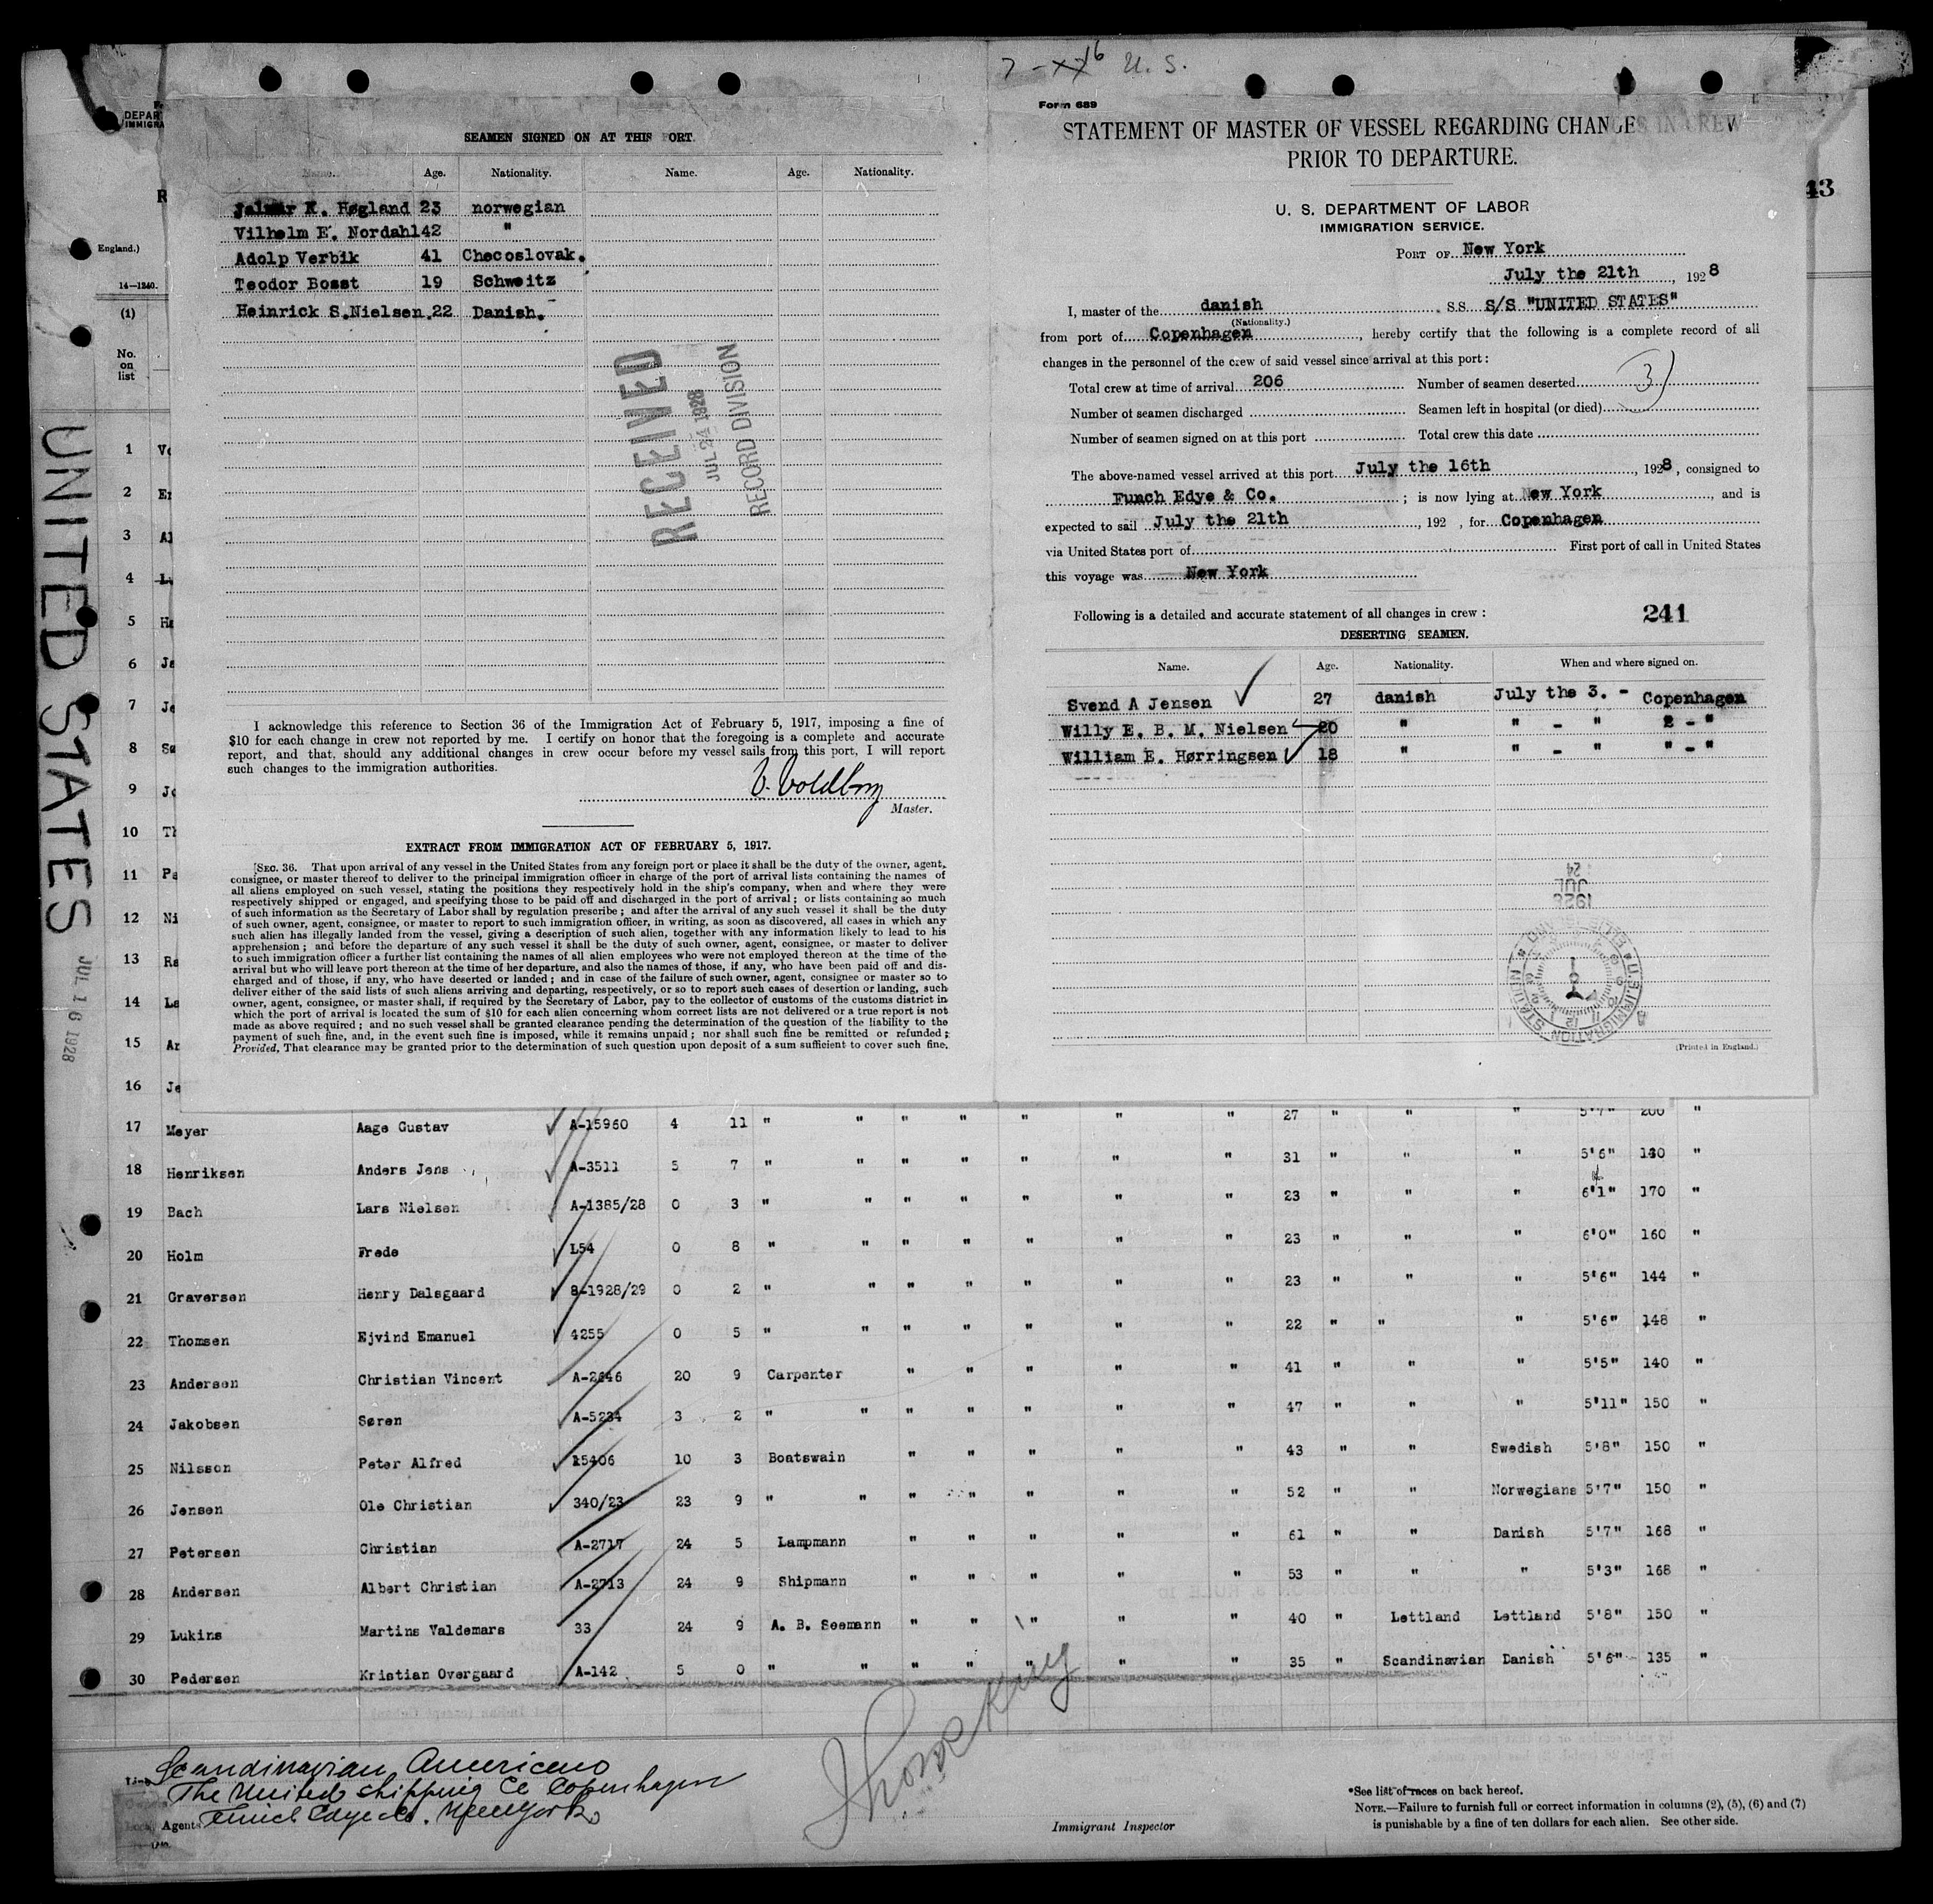 7 - 16 U. S.
DEPAR
IMMIGRA
R
England.)
14—1240.
(1)
No.
on
list
43
UNITED STATES
JUL 16 1928
SEAMEN SIGNED ON AT THIS PORT.
Name. Age. Nationality. Name. Age. Nationality.
K. Høgland 23 norwegian
Vilhelm E. Nordahl 42 "
Adolp Verbik 41 Checoslovak.
Teodor Bosst 19 Schweitz
Heinrick S.Nielsen. 22 Danish.
RECEIVED
JUL 24 1928
RECORD DIVISION
I acknowledge this reference to Section 36 of the Immigration Act of February 5, 1917, imposing a fine of
$10 for each change in crew not reported by me. I certify on honor that the foregoing is a complete and accurate
report, and that, should any additional changes in crew occur before my vessel sails from this port, I will report
such changes to the immigration authorities.
Master.
EXTRACT FROM IMMIGRATION ACT OF FEBRUARY 5, 1917.
[SEC. 36. That upon arrival of any vessel in the United States from any foreign port or place it shall be the duty of the owner, agent,
consignee, or master thereof to deliver to the principal immigration officer in charge of the port of arrival lists containing the names of
all aliens employed on such vessel, stating the positions they respectively hold in the ship's company, when and where they were
respectively shipped or engaged, and specifying those to be paid off and discharged in the port of arrival; or lists containing so much
of such information as the Secretary of Labor shall by regulation prescribe; and after the arrival of any such vessel it shall be the duty
of such owner, agent, consignee, or master to report to such immigration officer, in writing, as soon as discovered, all cases in which any
such alien has illegally landed from the vessel, giving a description of such alien, together with any information likely to lead to his
apprehension; and before the departure of any such vessel it shall be the duty of such owner, agent, consignee, or master to deliver
to such immigration officer a further list containing the names of all alien employees who were not employed thereon at the time of the
arrival but who will leave port thereon at the time of her departure, and also the names of those, if any, who have been paid off and dis-
charged and of those, if any, who have deserted or landed; and in case of the failure of such owner, agent, consignee or master so to
deliver either of the said lists of such aliens arriving and departing, respectively, or so to report such cases of desertion or landing, such
owner, agent, consignee, or master shall, if required by the Secretary of Labor, pay to the collector of customs of the customs district in
which the port of arrival is located the sum of $10 for each alien concerning whom correct lists are not delivered or a true report is not
made as above required; and no such vessel shall be granted clearance pending the determination of the question of the liability to the
payment of such fine, and, in the event such fine is imposed, while it remains unpaid; nor shall such fine be remitted or refunded;
Provided, That clearance may be granted prior to the determination of such question upon deposit of a sum sufficient to cover such fine.
Form 689
STATEMENT OF MASTER OF VESSEL REGARDING CHANGES IN CREW
PRIOR TO DEPARTURE.
U. S. DEPARTMENT OF LABOR
IMMIGRATION SERVICE.
PORT OF New York
July the 21th, 1928
I, master of the danish S.S. S/S "UNITED STATES"
(Nationality.)
from port of Copenhagen, hereby certify that the following is a complete record of all
changes in the personnel of the crew of said vessel since arrival at this port:
Total crew at time of arrival 206 Number of seamen deserted 3
Number of seamen discharged Seamen left in hospital (or died)
Number of seamen signed on at this port Total crew this date
The above-named vessel arrived at this port July the 16th, 1928, consigned to
Funch Edye & Co.; is now lying at New York, and is
expected to sail July the 21th, 192 , for Copenhagen
via United States port of First port of call in United States
this voyage was New York
Following is a detailed and accurate statement of all changes in crew: 241
DESERTING SEAMEN.
Name. Age. Nationality. When and where signed on.
Svend A Jensen 27 danish July the 3. - Copenhagen
Willy E. B. M. Nielsen 20 " " - " 2 - "
William E. Hørringsen 18 " " - " " - "
1928
JUL
24
U.S. IMMIGRATION STATION ELLIS ISLAND
(Printed in England.)
1 Vo
2 Er
3 Al
4 Lu
5 Ha
6 Ja
7 Je
8 Sø
9 Jo
10 Th
11 Pa
12 Ni
13 Ra
14 La
15 Ar
16 Je
17 Meyer Aage Gustav A-15960 4 11 " " " " " " " 27 " " " 5'7" 200 "
18 Henriksen Anders Jens A-3511 5 7 " " " " " " " 31 " " " 5'6" 130 "
19 Bach Lars Nielsen A-1385/28 0 3 " " " " " " " 23 " " " 6'1" 170 "
20 Holm Frede L54 0 8 " " " " " " " 23 " " " 6'0" 160 "
21 Graversen Henry Dalsgaard 8-1928/29 0 2 " " " " " " " 23 " " " 5'6" 144 "
22 Thomsen Ejvind Emanuel 4255 0 5 " " " " " " " 22 " " " 5'6" 148 "
23 Andersen Christian Vincent A-2646 20 9 Carpenter " " " " " 41 " " " 5'5" 140 "
24 Jakobsen Søren A-5234 3 2 " " " " " " " 47 " " " 5'11" 150 "
25 Nilsson Peter Alfred 15406 10 3 Boatswain " " " " " 43 " " Swedish 5'8" 150 "
26 Jensen Ole Christian 340/23 23 9 " " " " " " " 52 " " Norwegians 5'7" 150 "
27 Petersen Christian A-2717 24 5 Lampmann " " " " " 61 " " Danish 5'7" 168 "
28 Andersen Albert Christian A-2713 24 9 Shipmann " " " " " 53 " " " 5'3" 168 "
29 Lukins Martins Valdemars 33 24 9 A. B. Seemann " " " " " 40 " Lettland Lettland 5'8" 150 "
30 Pedersen Kristian Overgaard A-142 5 0 " " " " " " " 35 " Scandinavian Danish 5'6" 135 "
Scandinavian Americano
The United Shipping Co Copenhagen
Agents Funch Edye Co. New York
Immigrant Inspector
*See list of races on back hereof.
NOTE.—Failure to furnish full or correct information in columns (2), (5), (6) and (7)
is punishable by a fine of ten dollars for each alien. See other side.